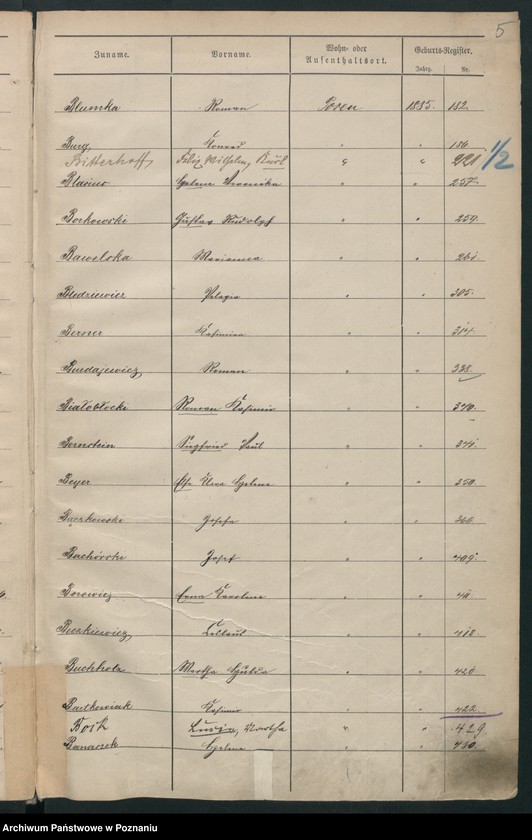 5
Zuname. Vorname. Wohn- oder Aufenthaltsort. Geburts-Register.
Jahrg. Nr.
Blumka Roman Posen 1885. 182.
Burg Konrad " " 186
Bitterhoff, Felix Wilhelm, Karl " " 221 1/2
Helene Veronika " " 257.
Borkowski Gustav Rudolph " " 259.
Bawelska Marianna " " 261
Pelagia " " 305.
Berner Kasimira " " 314.
Burdajewicz Roman " " 338.
Białobłocki Roman Kasimir " " 340.
Bernstein Siegfried Paul " " 341.
Beyer Else Helene " " 350
Bączkowska Josefa " " 360
Bachórski Josef " " 409.
Borowicz Erna Karoline " "
Buszkiewicz " " 418.
Buchholz Martha Hulda " " 420
Bartkowiak Kasimir " " 422.
Bork Lucia, Martha " " 429.
Banaszak Helene " " 430.
Archiwum Państwowe w Poznaniu